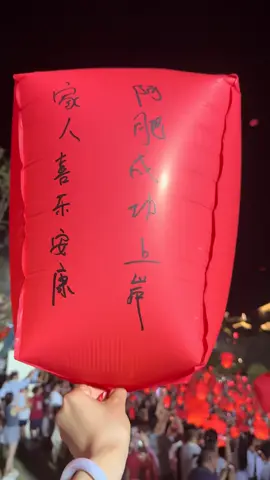 阿肥成功上岸
家人喜乐安康